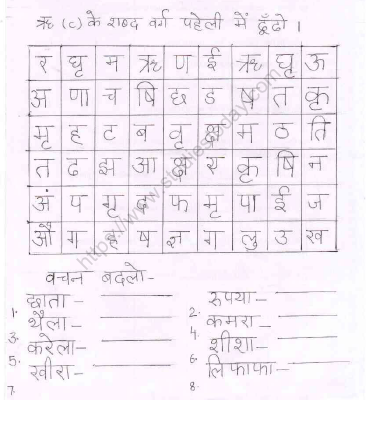 ऋ (ृ) के शब्द वर्ग पहेली में ढूँढो ।
र घृ म ऋ ण ई ऋ घृ ऊ
अ णा च षि छ ड ष त कृ
मृ ह ट ब वृ क्ष म ठ ति
त ढ झ आ क्ष र कृ षि न
अं प मृ द फ मृ पा ई ज
औ ग ष ज्ञ ग लु उ ख
वचन बदलो-
1. छाता- 2. रुपया-
3. थैला- 4. कमरा-
5. करेला- 6. शीशा-
7. खीरा- 8. लिफाफा-
https://www.studiestoday.com